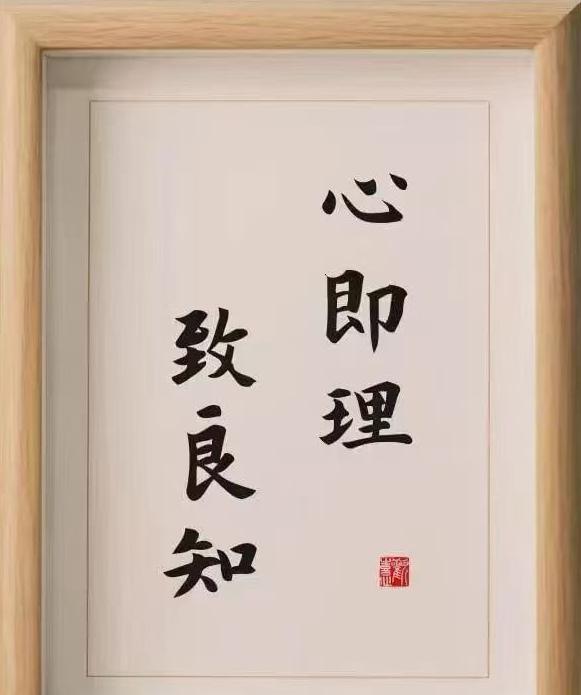 心即理
致良知